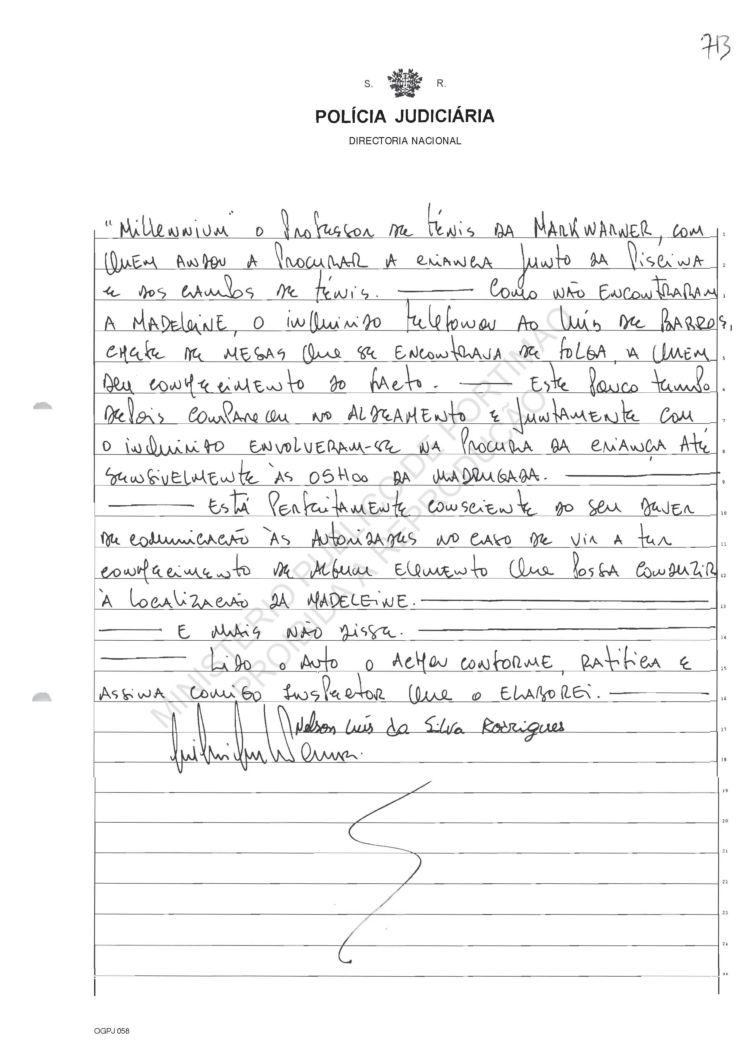 713
S. R.
POLÍCIA JUDICIÁRIA
DIRECTORIA NACIONAL
"Millennium" o Professor de ténis da MARKWARNER, com
quem andou a procurar a criança junto da piscina
e dos campos de ténis. ——— Como não encontraram
a Madeleine, o inquirido telefonou ao Luís de Barros,
chefe de mesas que se encontrava de folga, a quem
deu conhecimento do facto. ——— Este pouco tempo
depois compareceu no aldeamento e juntamente com
o inquirido envolveram-se na procura da criança até
sensivelmente às 05H00 da madrugada. ———
——— Está perfeitamente consciente do seu dever
de comunicação às autoridades no caso de vir a ter
conhecimento de algum elemento que possa conduzir
à localização da Madeleine. ———
——— E mais não disse. ———
——— Lido o auto o achou conforme, ratifica e
assina comigo Inspector que o elaborei. ———
Nelson Luís da Silva Rodrigues
MINISTÉRIO PÚBLICO DE PORTIMÃO
PROIBIDA A REPRODUÇÃO
1
2
3
4
5
6
7
8
9
10
11
12
13
14
15
16
17
18
19
20
21
22
23
24
OGPJ 058